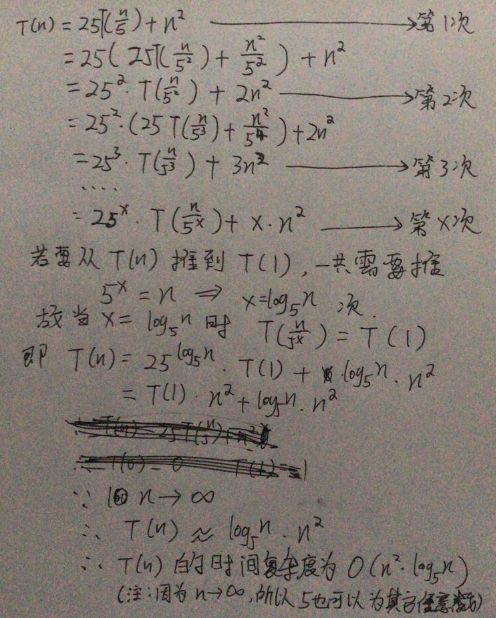 T(n) = 25T(n/5) + n² → 第1次
= 25(25T(n/5²) + n²/5²) + n²
= 25²·T(n/5²) + 2n² → 第2次
= 25²·(25T(n/5³) + n²/5⁴) + 2n²
= 25³·T(n/5³) + 3n² → 第3次
....
= 25ˣ·T(n/5ˣ) + x·n² → 第x次
若要从T(n)推到T(1),一共需要推
5ˣ = n ⇒ x=log₅n 次.
故当 x = log₅n 时 T(n/5ˣ) = T(1)
即 T(n) = 25^log₅n · T(1) + log₅n · n²
= T(1)·n² + log₅n·n²
∵ n→∞
∴ T(n) ≈ log₅n·n²
∴ T(n)的时间复杂度为O(n²·log₅n)
(注:因为n→∞,所以5也可以为其它任意数)